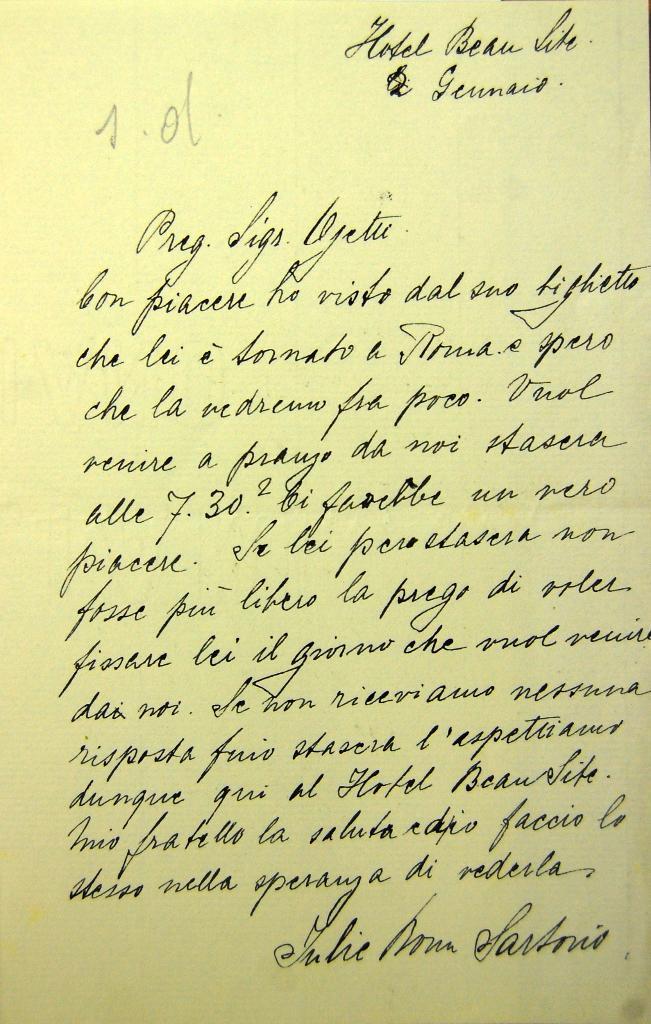 Hotel Beau Site.
2 Gennaio.
s.d.
Preg. Sigr. Ojetti.
Con piacere ho visto dal suo biglietto
che lei è tornato a Roma e spero
che la vedremo fra poco. Vuol
venire a pranzo da noi stasera
alle 7.30.? Ci farebbe un vero
piacere. Se lei però stasera non
fosse più libero la prego di voler
fissare lei il giorno che vuol venire
dai noi. Se non riceviamo nessuna
risposta fino stasera l'aspettiamo
dunque qui al Hotel Beau Site.
Mio fratello la saluta ed io faccio lo
stesso nella speranza di vederla.
Julie Bonn Sartorio.